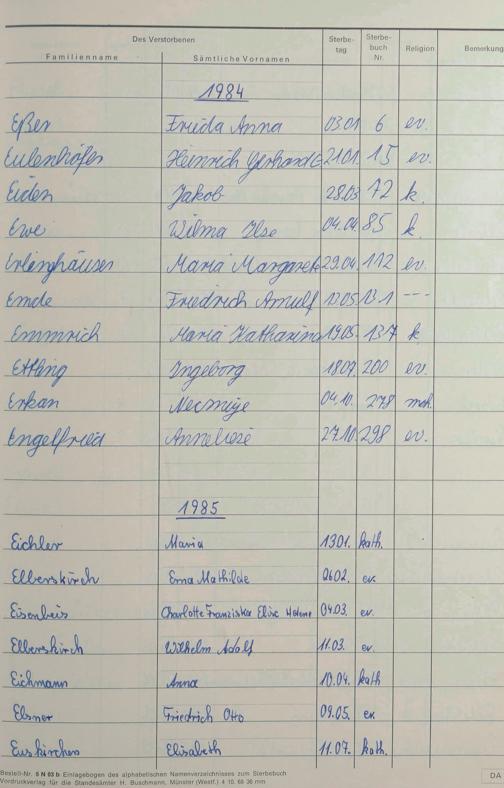 Des Verstorbenen Sterbe- tag Sterbe- buch Nr. Religion Bemerkung
Familienname Sämtliche Vornamen
1984
Eßer Frieda Anna 03.01 6 ev.
Eulenhöfer Heinrich Gerhard 21.01. 15 ev.
Eiden Jakob 28.03 72 k.
Ewe Wilma Ilse 04.04. 85 k.
Erlenghäuser Maria Margarete 29.04. 112 ev.
Emde Friedrich Arnulf 12.05 131 ---
Emmrich Maria Katharina 19.05. 137 k
Ettling Ingeborg 18.07. 200 ev.
Erkan Necmiye 04.10. 278 moh.
Engelfried Anneliese 27.10. 298 ev.
1985
Eichler Maria 13.01. kath.
Elberskirch Erna Mathilde 02. ev.
Eisenbeis Charlotte Franziska Elise Helene 04.03. ev.
Elberskirch Wilhelm Adolf 11.03. ev.
Eichmann Anna 10.04. kath
Elsner Friedrich Otto 09.05. ev.
Euskirchen Elisabeth 11.07. kath.
Bestell-Nr. 5 N 03 b Einlagebogen des alphabetischen Namenverzeichnisses zum Sterbebuch
Vordruckverlag für die Standesämter H. Buschmann, Münster (Westf.) 4 10. 68 36 mm DA